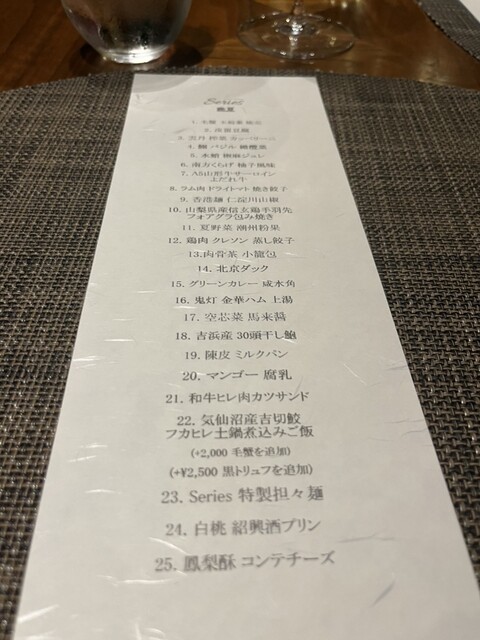 Series
晩夏
2. 冷製豆腐
4. 鯛 バジル
5. 水蛸 胡麻ジュレ
6. 南力くらげ 柚子風味
7. A5山形牛サーロイン
よだれ牛
8. ラム肉 ドライトマト 焼き餃子
9. 香港麺 仁淀川山椒
10. 山梨県産信玄鶏手羽先
フォアグラ包み焼き
11. 夏野菜 潮州粉果
12. 鶏肉 クレソン 蒸し餃子
13.肉骨茶 小籠包
14. 北京ダック
15. グリーンカレー 咸水角
16. 鬼灯 金華ハム 上湯
17. 空芯菜 馬来醤
18. 吉浜産 30頭干し鮑
19. 陳皮 ミルクパン
20. マンゴー 腐乳
21. 和牛ヒレ肉カツサンド
22. 気仙沼産吉切鮫
フカヒレ土鍋煮込みご飯
(+2,000 毛蟹を追加)
(+¥2,500 黒トリュフを追加)
23. Series 特製担々麺
24. 白桃 紹興酒プリン
25. 鳳梨酥 コンテチーズ